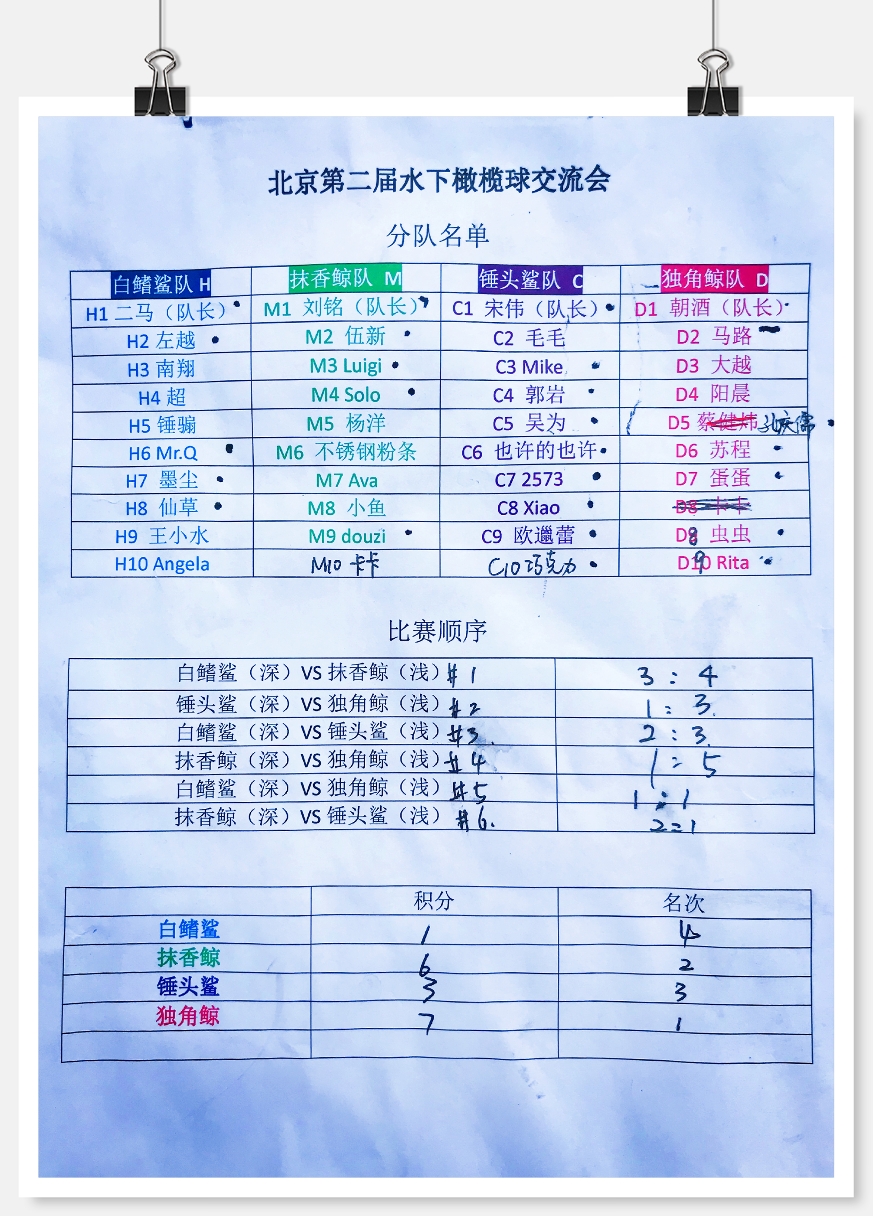 北京第二届水下橄榄球交流会
分队名单
白鳍鲨队 H 抹香鲸队 M 锤头鲨队 C 独角鲸队 D
H1 二马（队长） M1 刘铭（队长） C1 宋伟（队长） D1 朝酒（队长）
H2 左越 M2 伍新 C2 毛毛 D2 马路
H3 南翔 M3 Luigi C3 Mike D3 大越
H4 超 M4 Solo C4 郭岩 D4 阳晨
H5 锤骟 M5 杨洋 C5 吴为 D5 蔡健炜
H6 Mr.Q M6 不锈钢粉条 C6 也许的也许 D6 苏程
H7 墨尘 M7 Ava C7 2573 D7 蛋蛋
H8 仙草 M8 小鱼 C8 Xiao D8 卡卡
H9 王小水 M9 douzi C9 欧邋蕾 D8 虫虫
H10 Angela M10 卡卡 C10 巧克力 D9 Rita
比赛顺序
白鳍鲨（深）VS 抹香鲸（浅）#1 3:4
锤头鲨（深）VS 独角鲸（浅）#2 1:3
白鳍鲨（深）VS 锤头鲨（浅）#3. 2:3.
抹香鲸（深）VS 独角鲸（浅）#4 1:5
白鳍鲨（深）VS 独角鲸（浅）#5 1:1
抹香鲸（深）VS 锤头鲨（浅）#6. 2:1
积分 名次
白鳍鲨 1 4
抹香鲸 6 2
锤头鲨 3 3
独角鲸 7 1